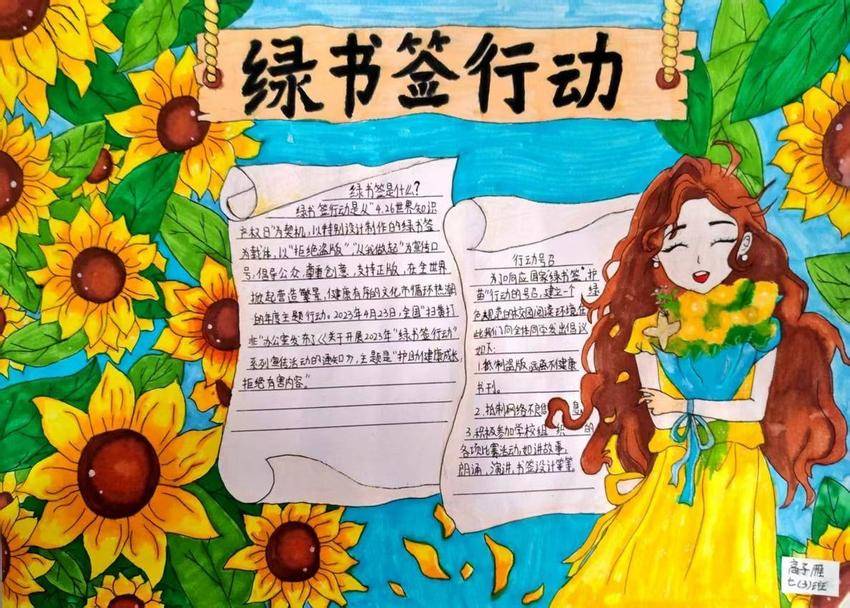 绿书签行动
绿书签是什么?
绿书签行动是从“4.26世界知识
产权日”为契机,以特别设计制作的绿书签
为载体,以“拒绝盗版”“从我做起”为宣传口
号,倡导公众,尊重创意,支持正版,在全世界
掀起营造繁荣,健康有序的文化市循环热潮
的年度主题行动。2023年4月23日,全国“扫黄打
非”办公室发布了《关于开展2023年“绿书签行动”
系列宣传活动的通知》,主题是“护助健康成长
拒绝有害内容。”
行动号召
为了响应国家绿书签“护
苗”行动的号召,建立一个绿
色规范的校园阅读环境在
此我们向全体同学发出倡议
如下:
1.抵制盗版,远离不健康
书刊。
2.抵制网络不良信息
3.积极参加学校组织的
各项比赛活动,如讲故事,
朗诵,演讲,书签设计等等
高子雁
七(3)班